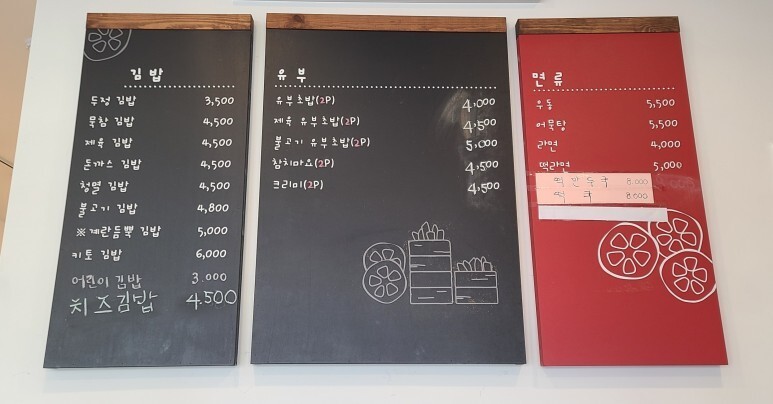 김밥
두정 김밥 3,500
묵참 김밥 4,500
제육 김밥 4,500
돈까스 김밥 4,500
청멸 김밥 4,500
불고기 김밥 4,800
※계란듬뿍 김밥 5,000
키토 김밥 6,000
어린이 김밥 3.000
치즈김밥 4.500
유부
유부초밥(2P) 4,000
제육 유부초밥(2P) 4,500
불고기 유부초밥(2P) 5,000
참치마요(2P) 4,500
크리미(2P) 4,500
면류
우동 5,500
어묵탕 5,500
라면 4,000
떡라면 5,000
떡만두국 8.000
떡국 8.000